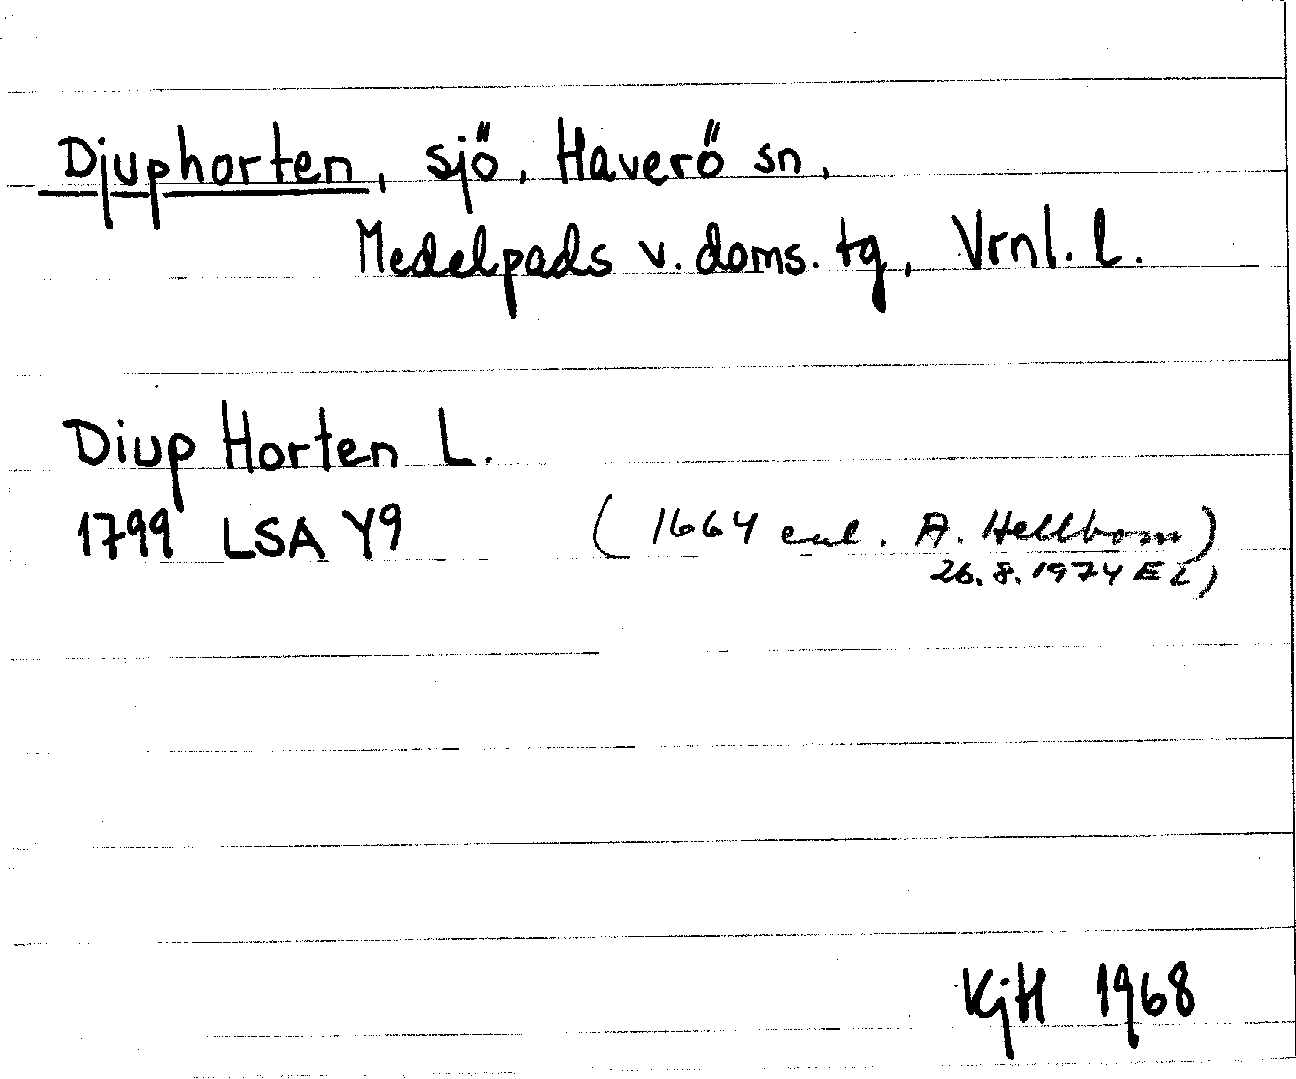 Djuphorten, sjö, Haverö sn,
Medelpads v. doms. tg, Vrnl. l.
Diup Horten L.
1799 LSA Y9 (1664 enl. A. Hellbom)
26.8.1974 EL)
KjH 1968